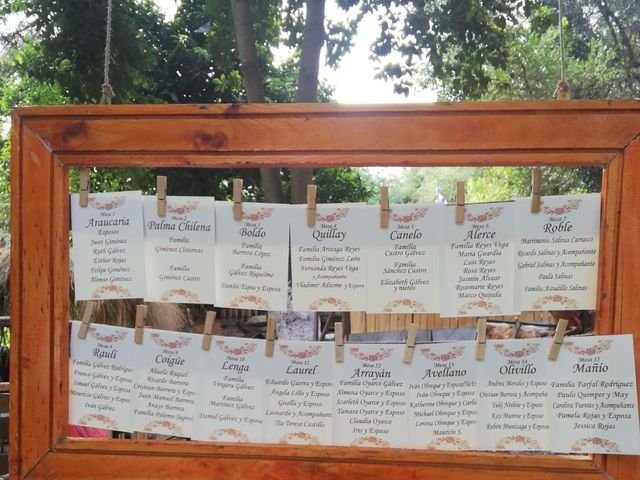 Mesa 1
Araucaria
Esposos
Juan Giménez
Ruth Gálvez
Esther Rojas
Felipe Giménez
Alonso Giménez
Mesa 2
Palma Chilena
Familia
Giménez Cisternas
Familia
Giménez Castro
Mesa 3
Boldo
Familia
Barrera López
Familia
Gálvez Riquelme
Danilo Tapia y Esposa
Mesa 4
Quillay
Familia Arteaga Reyes
Familia Giménez León
Fernanda Reyes Vega
y Acompañante
Vladimir Adasme y Esposa
Mesa 5
Canelo
Familia
Castro Gálvez
Familia
Sánchez Castro
Elizabeth Gálvez
y nietos
Mesa 6
Alerce
Familia Reyes Vega
María Guardia
Luis Reyes
Rosa Reyes
Jazmín Alvear
Rosemarie Reyes
Marco Quijada
Mesa 7
Roble
Matrimonio Salinas Carrasco
Ricardo Salinas y Acompañante
Gabriel Salinas y Acompañante
Paula Salinas
Familia Astudillo Salinas
Mesa 8
Raulí
Familia Gálvez Rodrígue
Franco Gálvez y Esposa
Ismael Gálvez y Esposa
Mauricio Gálvez y Espos
Iván Gálvez
Mesa 9
Coigüe
Abuela Raquel
Ricardo Barrera
Cristian Barrera y Espos
Juan Manuel Barrera
Anays Barrera
Familia Palomo Sepúl
Mesa 10
Lenga
Familia
Vergara Gálvez
Familia
Martínez Gálvez
Daniel Gálvez y Esposa
Mesa 11
Laurel
Eduardo Guerra y Espos
Angela Lillo y Esposo
Gisella y Esposo
Leonardo y Acompañant
Tía Teresa Castillo
Mesa 12
Arrayán
Familia Oyarce Gálvez
Ximena Oyarce y Esposo
Scarleth Oyarce y Esposo
Tamara Oyarce y Esposo
Claudia Oyarce
Iris y Esposo
Mesa 13
Avellano
Iván Obreque y Esposa
Iván Obreque y Esposa
Katherine Obreque y Carlo
Michael Obreque y Espos
Lorena Obreque y Espos
Mauricio S.
Mesa 14
Olivillo
Andrea Morales y Esposo
Cristian Barrera y Acompaña
Yuki Nishio y Esposo
Kay Munroe y Esposo
Rubín Munizaga y Esposa
Mesa 15
Mañío
Familia Farfal Rodríguez
Paulo Quimper y May
Carolina Fuentes y Acompañante
Pamela Rojas y Esposo
Jessica Rojas